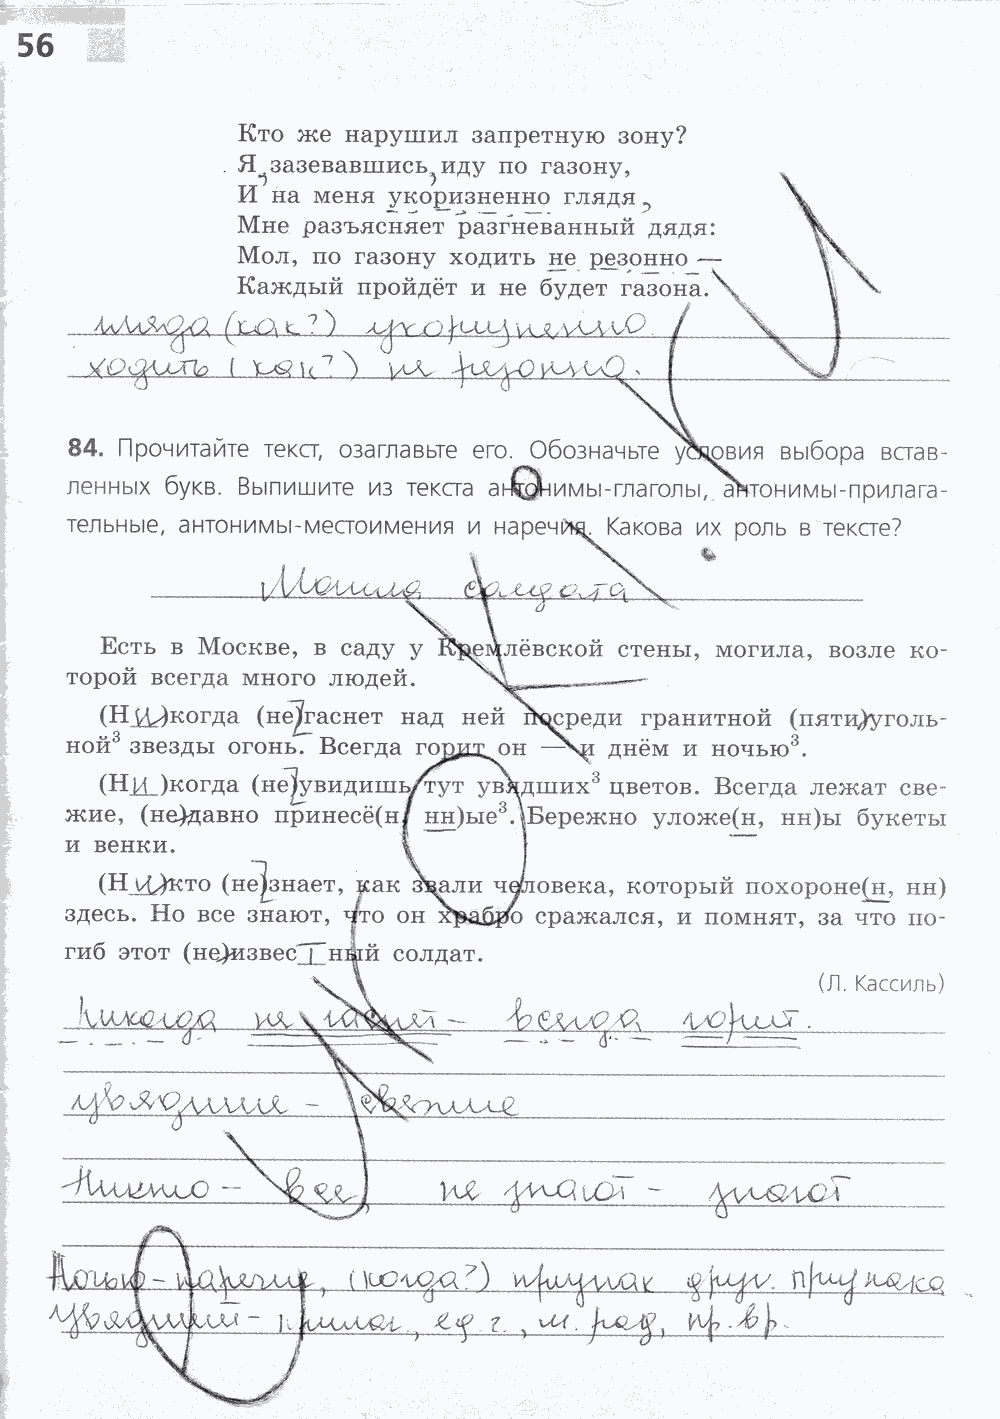 56
Кто же нарушил запретную зону?
Я, зазевавшись, иду по газону,
И на меня укоризненно глядя,
Мне разъясняет разгневанный дядя:
Мол, по газону ходить не резонно —
Каждый пройдёт и не будет газона.
глядя (как?) укоризненно.
ходить (как?) не резонно.
84. Прочитайте текст, озаглавьте его. Обозначьте условия выбора встав-
ленных букв. Выпишите из текста антонимы-глаголы, антонимы-прилага-
тельные, антонимы-местоимения и наречия. Какова их роль в тексте?
Могила солдата
Есть в Москве, в саду у Кремлёвской стены, могила, возле ко-
торой всегда много людей.
(Ни)когда (не)гаснет над ней посреди гранитной (пяти)уголь-
ной³ звезды огонь. Всегда горит он — и днём и ночью³.
(Ни)когда (не)увидишь тут увядших³ цветов. Всегда лежат све-
жие, (не)давно принесё(н, нн)ые³. Бережно уложе(н, нн)ы букеты
и венки.
(Ни)кто (не)знает, как звали человека, который похороне(н, нн)
здесь. Но все знают, что он храбро сражался, и помнят, за что по-
гиб этот (не)известный солдат.
(Л. Кассиль)
Никогда не гаснет – всегда горит.
увядшие – свежие
Никто – все, не знают – знают
Ночью – наречие, (когда?) признак друг. признака
увядший – прилаг., ед. ч., м. род, пр. вр.